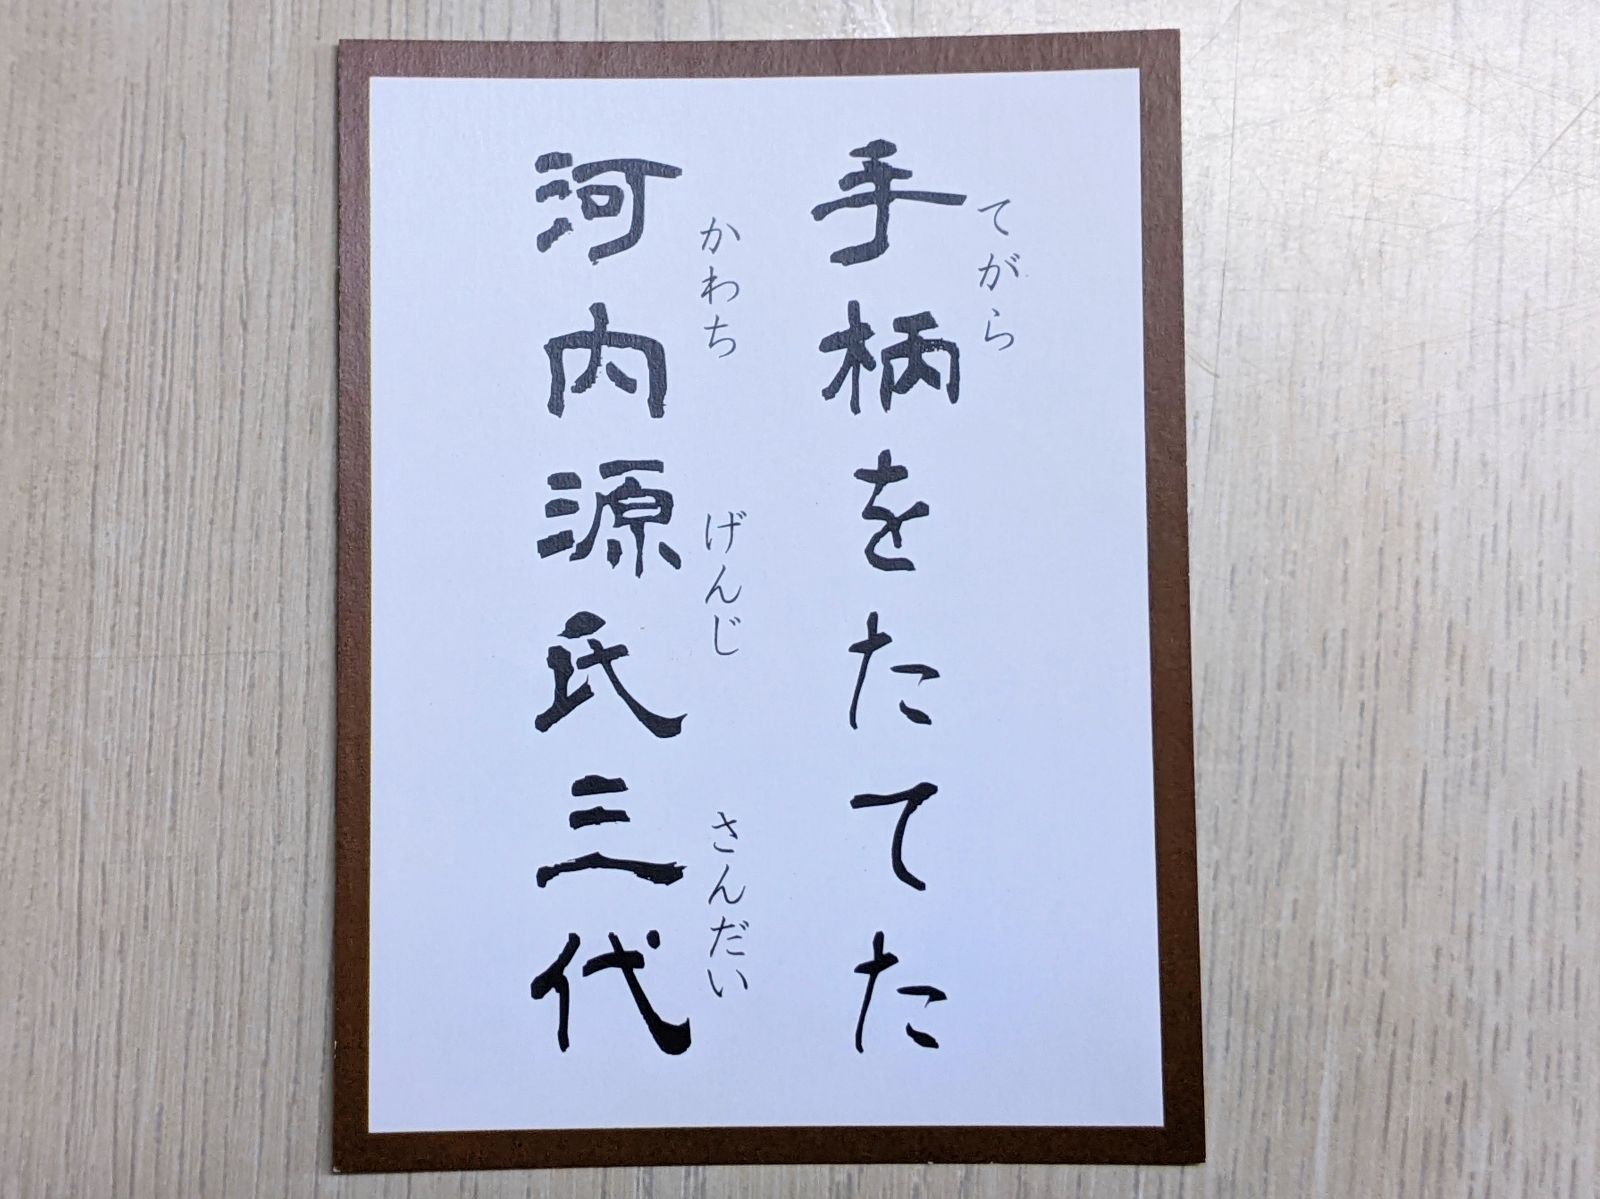 手柄をたてた
てがら
河内源氏三代
かわち げんじ さんだい